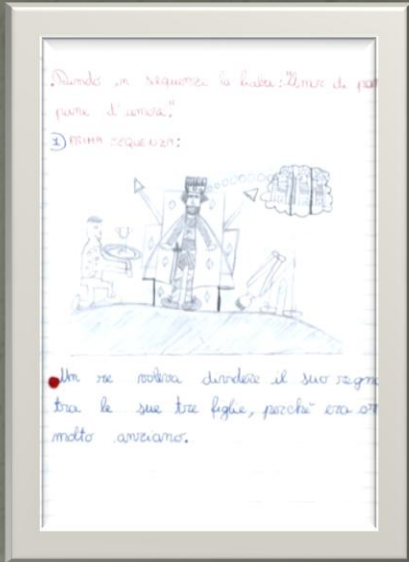 in sequenze la fiaba:
1) PRIMA SEQUENZA:
Un re voleva dividere il suo regn
tra le sue tre figlie, perchè era or
molto anziano.